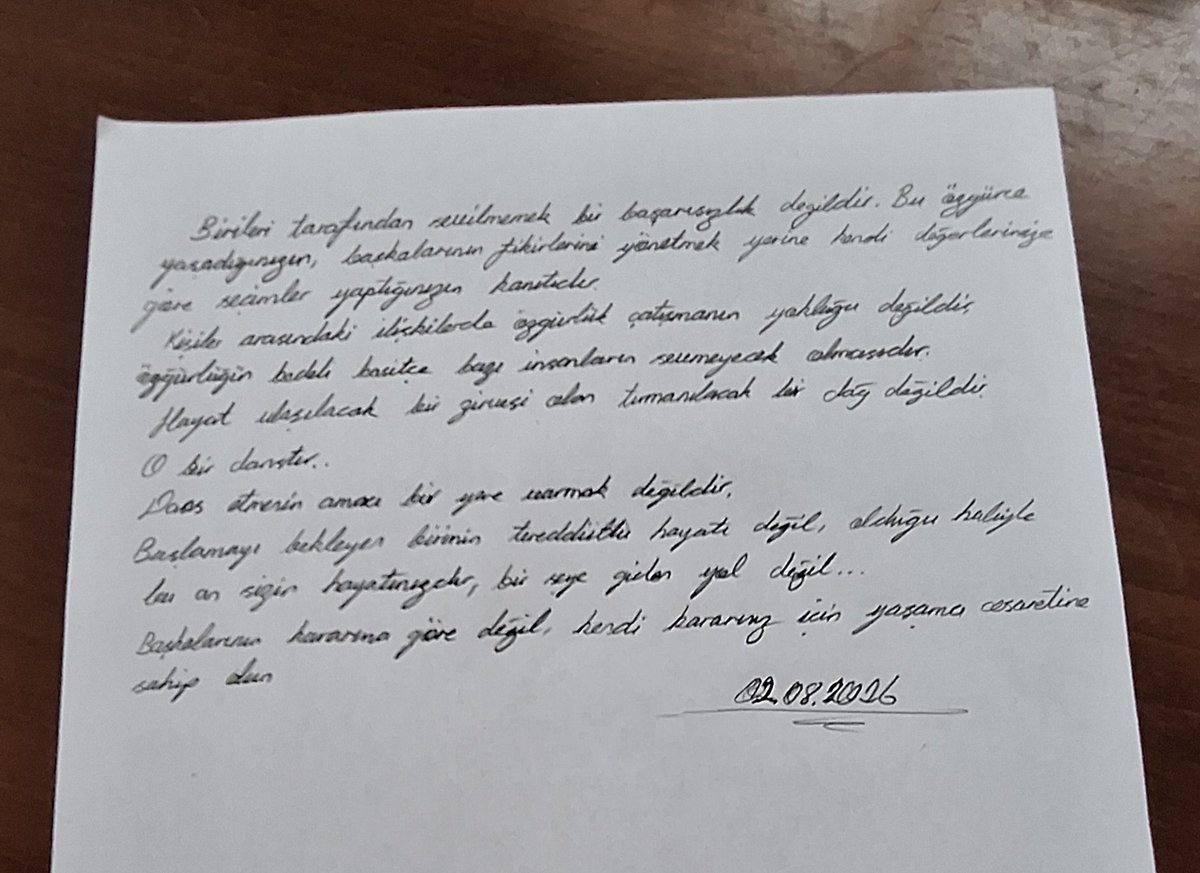 Birileri tarafından sevilmemek bir başarısızlık değildir. Bu özgürce
yaşadığınızın, başkalarının fikirlerini yönetmek yerine kendi değerlerinize
göre seçimler yaptığınızın kanıtıdır.
Kişiler arasındaki ilişkilerde özgürlük çatışmanın yokluğu değildir,
özgürlüğün bedeli basitçe bazı insanların sevmeyecek olmasıdır.
Hayat ulaşılacak bir zirvesi olan tırmanılacak bir dağ değildir.
O bir danstır..
Dans etmenin amacı bir yere varmak değildir.
Başlamayı bekleyen birinin tereddütlü hayatı değil, olduğu haliyle
bu an sizin hayatınızdır, bir şeye giden yol değil...
Başkalarının kararına göre değil, kendi kararınız için yaşama cesaretine
sahip olun
02.08.2026